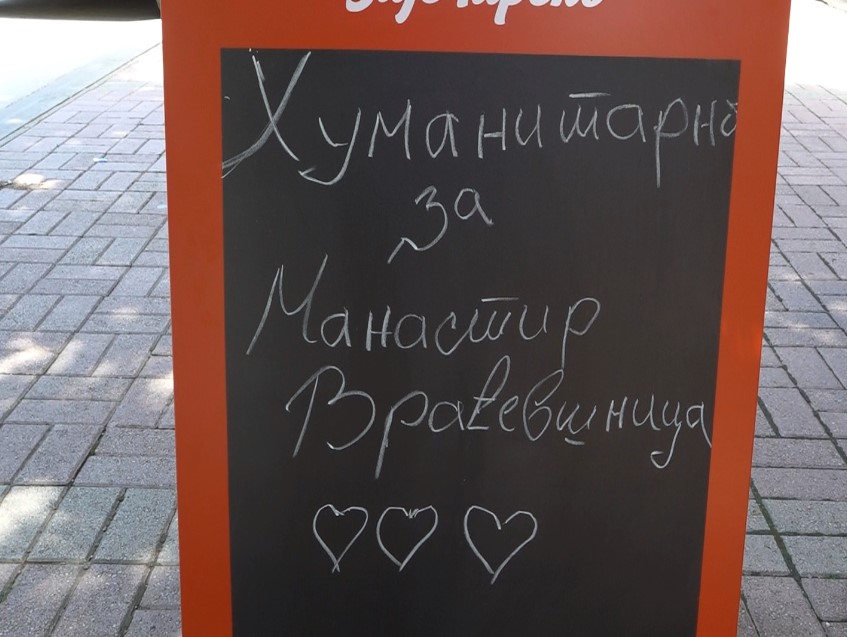 Хуманитарно
за
Манастир
Враћевшница